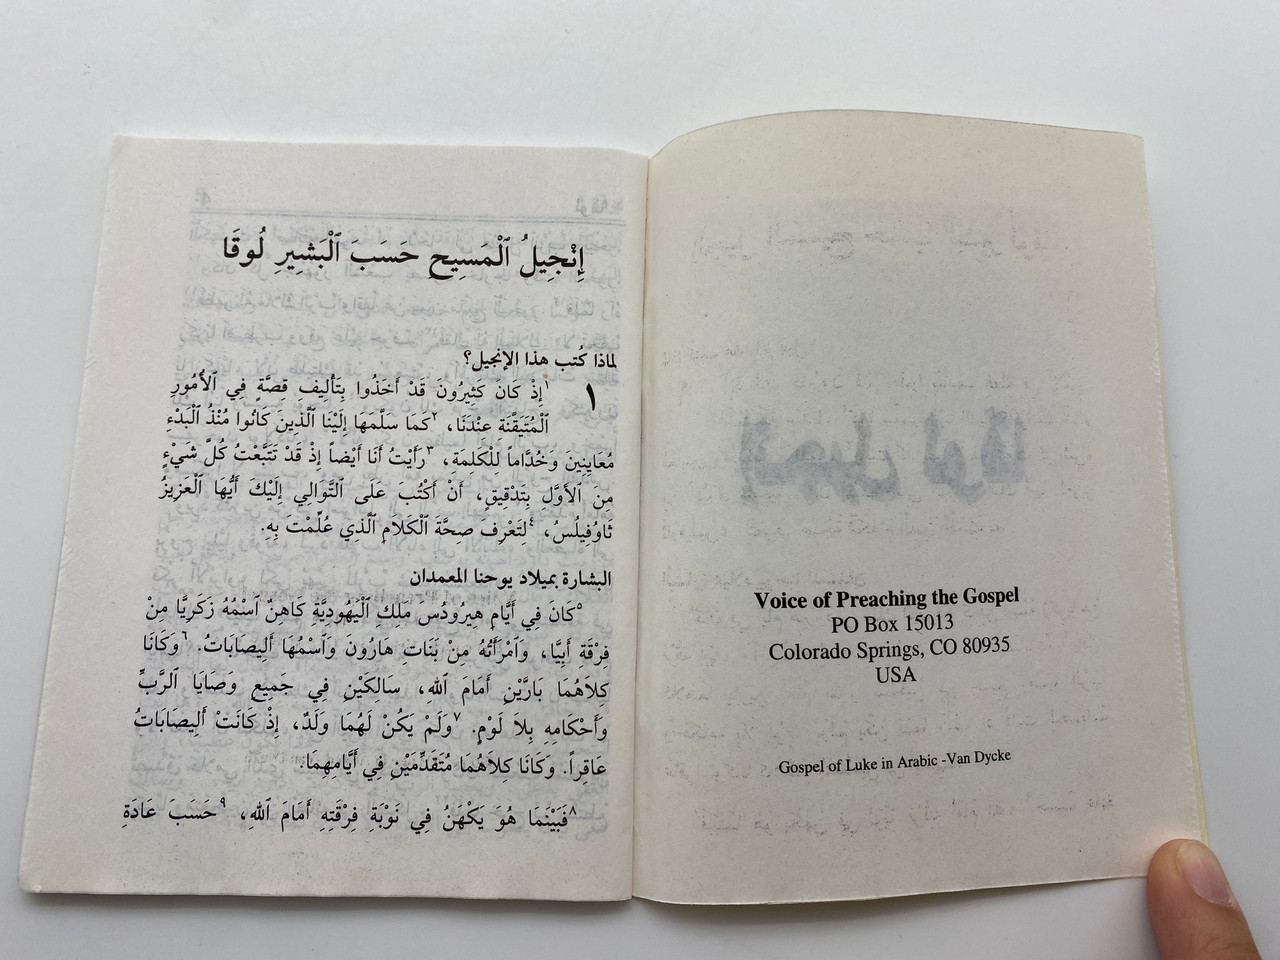 Voice of Preaching the Gospel
PO Box 15013
Colorado Springs, CO 80935
USA
Gospel of Luke in Arabic -Van Dycke
إِنْجِيلُ ٱلْمَسِيحِ حَسَبَ ٱلْبَشِيرِ لُوقَا
لماذا كُتب هذا الإنجيل؟
١ ١إِذْ كَانَ كَثِيرُونَ قَدْ أَخَذُوا بِتَأْلِيفِ قِصَّةٍ فِي ٱلأُمُورِ
ٱلْمُتَيَقَّنَةِ عِنْدَنَا، ٢كَمَا سَلَّمَهَا إِلَيْنَا ٱلَّذِينَ كَانُوا مُنْذُ ٱلْبَدْءِ
مُعَايِنِينَ وَخُدَّاماً لِلْكَلِمَةِ، ٣رَأَيْتُ أَنَا أَيْضاً إِذْ قَدْ تَتَبَّعْتُ كُلَّ شَيْءٍ
مِنَ ٱلأَوَّلِ بِتَدْقِيقٍ، أَنْ أَكْتُبَ عَلَى ٱلتَّوَالِي إِلَيْكَ أَيُّهَا ٱلْعَزِيزُ
ثَاوُفِيلُسُ، ٤لِتَعْرِفَ صِحَّةَ ٱلْكَلاَمِ ٱلَّذِي عُلِّمْتَ بِهِ.
البشارة بميلاد يوحنا المعمدان
٥كَانَ فِي أَيَّامِ هِيرُودُسَ مَلِكِ ٱلْيَهُودِيَّةِ كَاهِنٌ ٱسْمُهُ زَكَرِيَّا مِنْ
فِرْقَةِ أَبِيَّا، وَٱمْرَأَتُهُ مِنْ بَنَاتِ هَارُونَ وَٱسْمُهَا أَلِيصَابَاتُ. ٦وَكَانَا
كِلاَهُمَا بَارَّيْنِ أَمَامَ ٱللهِ، سَالِكَيْنِ فِي جَمِيعِ وَصَايَا ٱلرَّبِّ
وَأَحْكَامِهِ بِلاَ لَوْمٍ. ٧وَلَمْ يَكُنْ لَهُمَا وَلَدٌ، إِذْ كَانَتْ أَلِيصَابَاتُ
عَاقِراً. وَكَانَا كِلاَهُمَا مُتَقَدِّمَيْنِ فِي أَيَّامِهِمَا.
٨فَبَيْنَمَا هُوَ يَكْهَنُ فِي نَوْبَةِ فِرْقَتِهِ أَمَامَ ٱللهِ، ٩حَسَبَ عَادَةِ